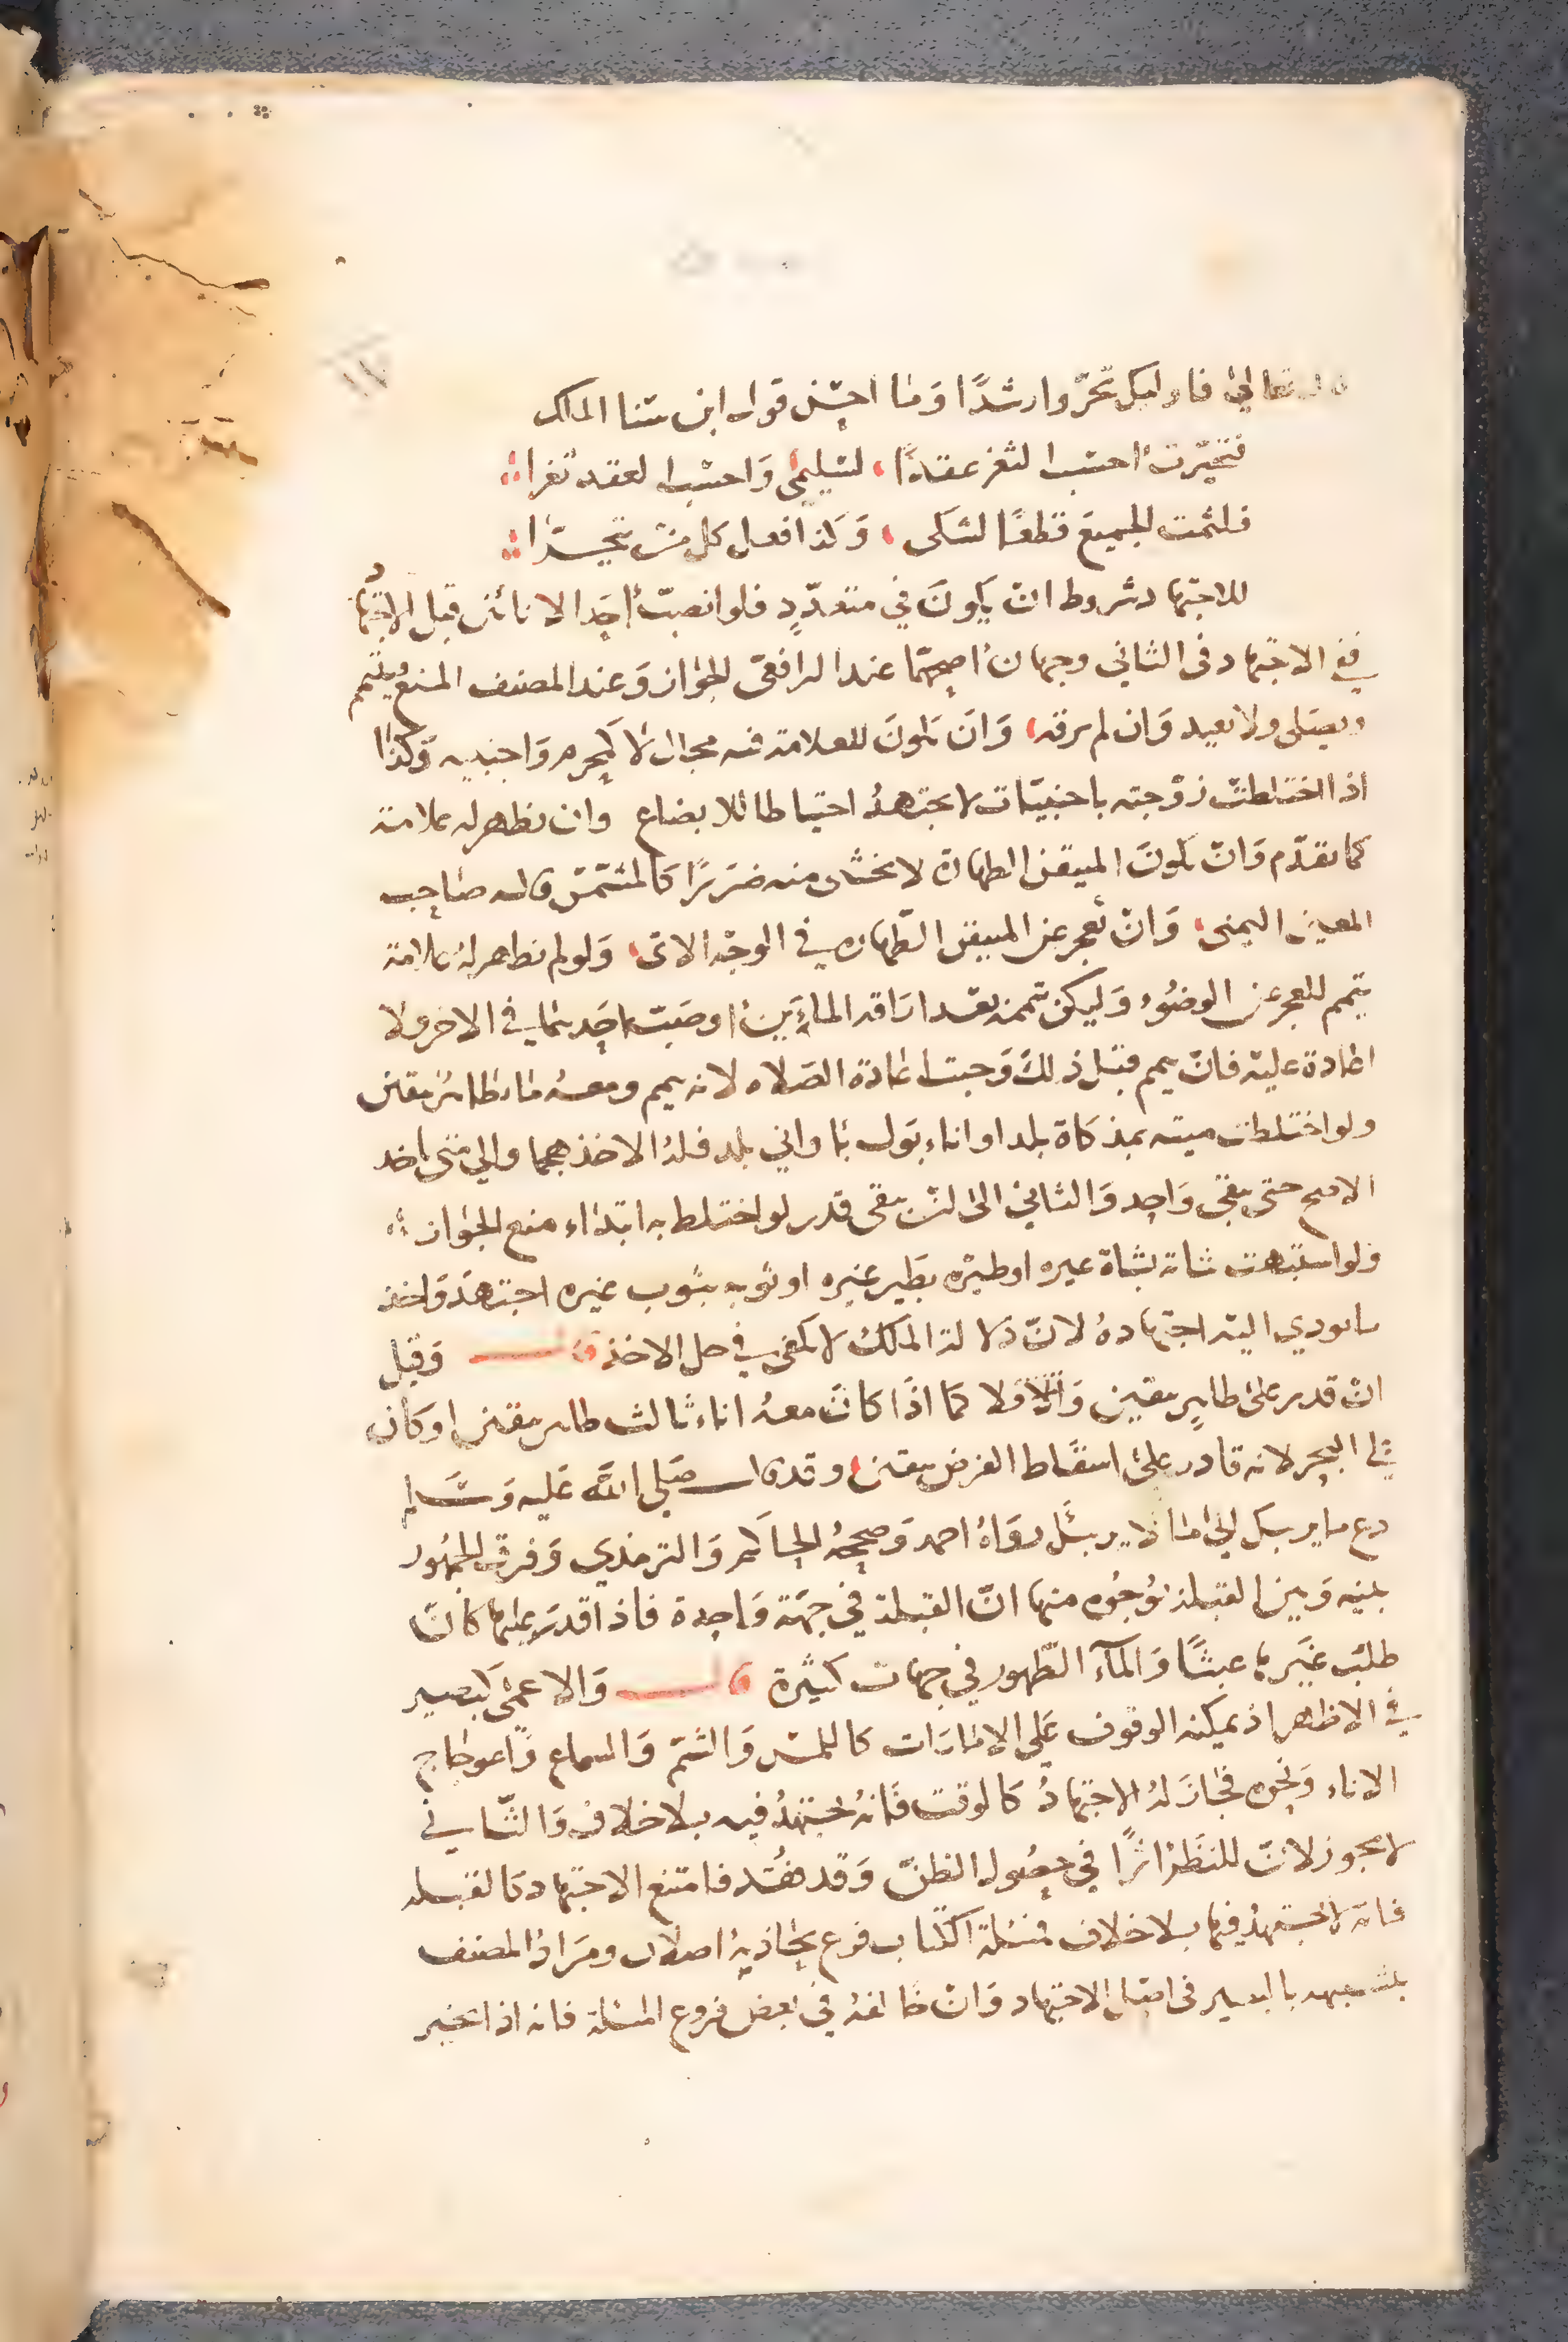 قال تعالى فاوليك تحرّوا رشدًا وَما احسن قول ابن سنا الملك
فتخيّرت احسب الثغر عقدًا، لسليمى وَاحسب العقد ثغرا
فلثمت الجميع قطعًا لشكى، وَكذا فعل كل من يتحرّا
للاجتهاد شروط ان يكونَ في متعدّدٍ فلو انصبّ احَد الانائين قبل الاجتهاد
ففي الاجتهاد فى الثاني وجهان اصحهما عند الرافعى الجواز وَعند المصنف المنع فيتيمم
ويصلى ولا يعيد وَان لم يرقه، وَان يكونَ للعلامة فيه مجال لا كمحرم وَاجنبيه وَكذا
اذا اختلطت زوْجته باجنبيّات لا يجتهدُ احتياطا للابضاع وان يظهر له علامة
كما تقدّم وَانّ يكونَ المتيقن الطهارة لا يخشى منه ضرَرًا كالمشمّس قاله صَاحب
المعين اليمنى، وَانْ يعجز عن المتيقن الطّهاره في الوجْه الاتى، وَلو لم تظهر لهُ علامة
يتيمم للعجز عن الوضوُء وَليكن تيممه بعْد ارَاقه الماءَين اوصَبّ احَدهما في الاخر ولا
اعادة عليْه فانْ تيمم قبْل ذلكَ وَجبت اعادة الصّلاه لانه تيمم ومعهُ ماء طاهر بيقين
ولو اختلطت ميته بمذكاة بلد او اناء بَول باواني بلد فلهُ الاخذ منهما والى متى ياخد
الاصح حتى يبقى وَاحِد وَالثاني الى ان يبقى قدر لو اختلط به ابتدَاء منع الجوَاز
وَلو اشتبهت شاته بشاة غيره او طيرْه بطَير غيره او ثوبه بثوب غيره اجتهدَ وَاخذ
ما يودي اليْه اجتهادهُ لانّ دلالة الملكُ لا تكفى في حل الاخذ قال وَقيل
انْ قدر على طاهِر بيقين وَالا فلا كمَا اذَا كانَ معهُ اناء ثالث طاهر بيقين او كان
في البحر لانه قادر على اسقَاط الفرض بيقين، وقد قال صَلى الله عَليه وَسَلم
دع ما يريبك الى ما لا يريبكَ روَاهُ احمد وَصححهُ الحاكم وَالترمذي وَفرق الجمْهُور
بينه وَبين القبلة بوُجُوه منها انّ القبلة في جهَة وَاحِدة فاذا قدرَ عليها كانَ
طلبَ غيَرها عبثًا وَالمآء الطّهور في جهات كثيْرة قال وَالاعمَى كبصير
في الاظهر اذ يمكنه الوقوف عَلى الامارَات كاللمسْ وَالشمّ وَالسماع وَاعوجاج
الاناء وَنحوه فجَازَ لهُ الاجتهادُ كالوقت فَانهُ يجتهدُ فيه بلا خلاف وَالثّاني
لا يجوز لانّ للنظَر اثرًا في حصُول الظنّ وَقد فقُد فامتنع الاجتهاد كالقبله
فانه لا يجتهدُ فيها بلا خلاف فمسْئلة الكتاب فرع يجاذبهُ اصلان ومرَادُ المصنف
بتشبيهه بالبصير فى اصْل الاجتهاد وَانْ خالفهُ في بعض فروع المسئلة فانه اذا تحير